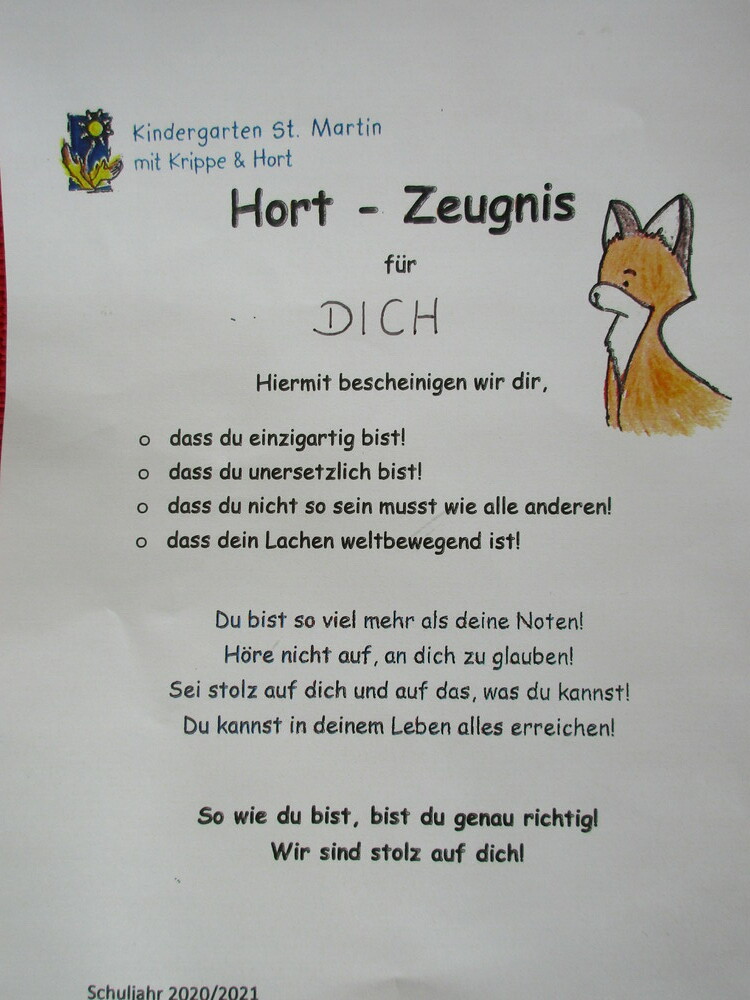 Kindergarten St. Martin
mit Krippe & Hort
Hort - Zeugnis
für
DICH
Hiermit bescheinigen wir dir,
o dass du einzigartig bist!
o dass du unersetzlich bist!
o dass du nicht so sein musst wie alle anderen!
o dass dein Lachen weltbewegend ist!
Du bist so viel mehr als deine Noten!
Höre nicht auf, an dich zu glauben!
Sei stolz auf dich und auf das, was du kannst!
Du kannst in deinem Leben alles erreichen!
So wie du bist, bist du genau richtig!
Wir sind stolz auf dich!
Schuljahr 2020/2021